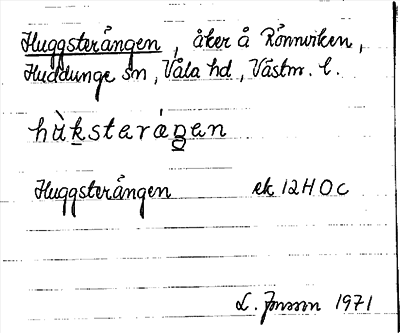 Huggsterången, åker å Rönnviken,
Huddunge sn, Våla hd, Västm. l.
hùksteráŋen
Huggsterången ek 12H0c
L. Jonsson 1971